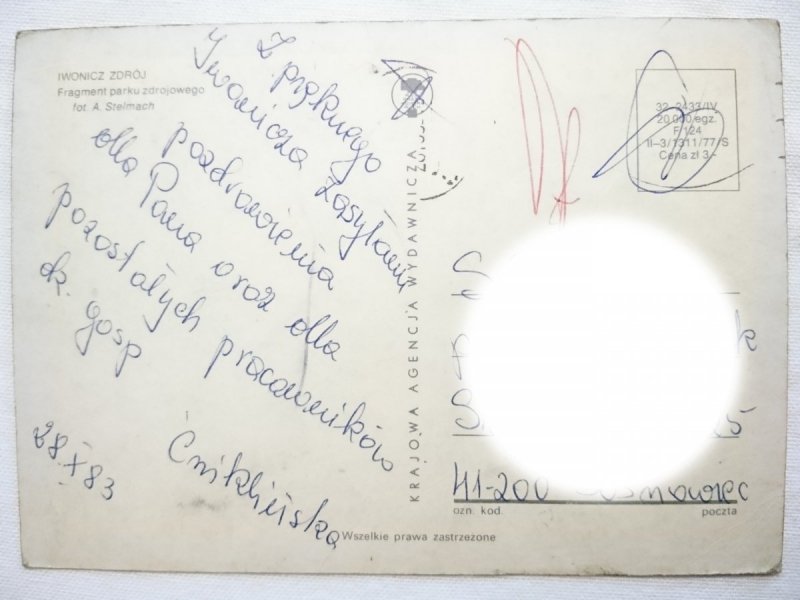 IWONICZ ZDRÓJ
Fragment parku zdrojowego
fot. A. Stelmach
Z pięknego
Iwonicza zasyłam
pozdrowienia
dla Pana oraz dla
pozostałych pracowników
dz. gosp
28.X 83
Ćniklińska
KRAJOWA AGENCJA WYDAWNICZA
32-2433/IV
20 000/egz.
F/124
II-3/1311/77/S
Cena zł 3,-
41-200 Sosnowiec
ozn. kod. poczta
Wszelkie prawa zastrzeżone